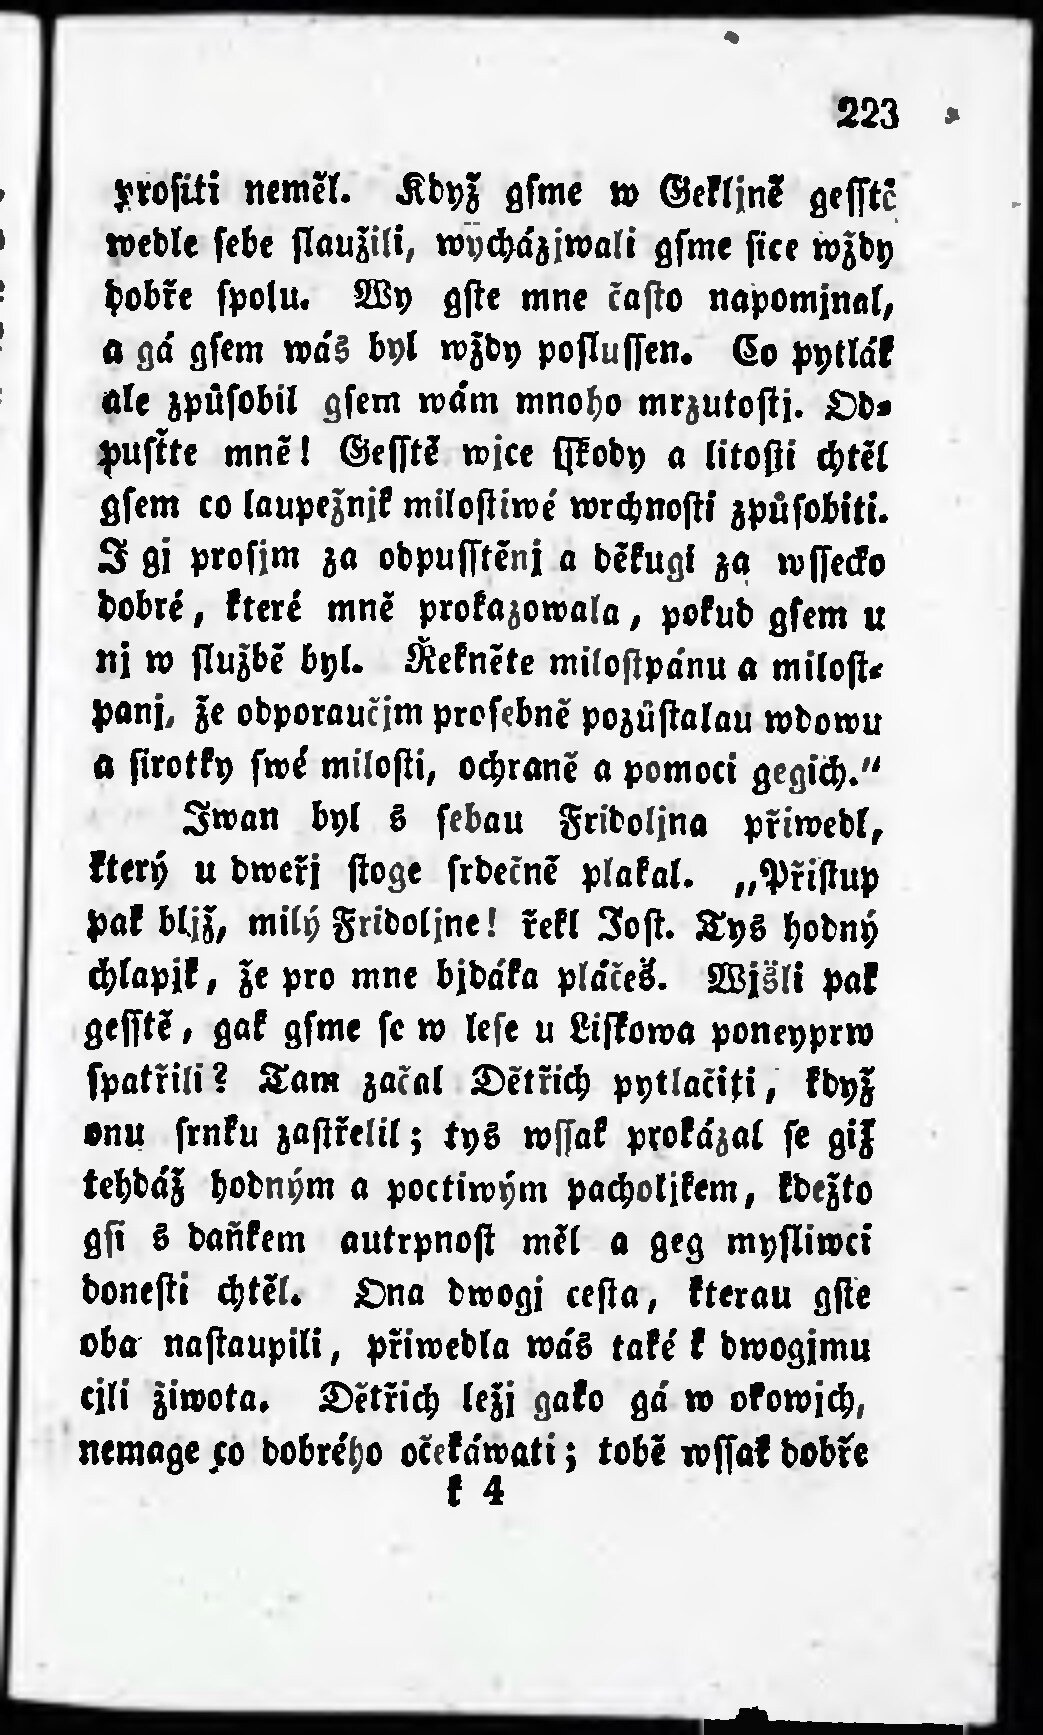 223
proſiti neměl. Když gſme w Gekljně geſſtě
wedle ſebe ſlaužili, wycházjwali gſme ſice wždy
dobře ſpolu. Wy gſte mne čaſto napomjnal,
a gá gſem wás byl wždy poſluſſen. Co pytlák
ale způſobil gſem wám mnoho mrzutoſtj. Od-
puſťte mně! Geſſtě wjce ſſkody a litoſti chtěl
gſem co laupežnjk miloſtiwé wrchnoſti způſobiti.
I gi proſjm za odpuſſtěnj a děkugi za wſſecko
dobré, které mně prokazowala, pokud gſem u
nj w ſlužbě byl. Řekněte miloſtpánu a miloſt-
panj, že odporaučjm proſebně pozůſtalau wdowu
a ſirotky ſwé miloſti, ochraně a pomoci gegich.“
Iwan byl s ſebau Fridoljna přiwedl,
který u dweřj ſtoge ſrdečně plakal. „Přiſtup
pak bljž, milý Fridoljne! řekl Joſt. Tys hodný
chlapjk, že pro mne bjdáka pláčeš. Wjšli pak
geſſtě, gak gſme ſe w leſe u Liſkowa poneyprw
ſpatřili? Tam začal Dětřich pytlačiti, když
onu ſrnku zaſtřelil; tys wſſak prokázal ſe giž
tehdáž hodným a poctiwým pacholjkem, kdežto
gſi s daňkem autrpnoſt měl a geg myſliwci
doneſti chtěl. Ona dwogj ceſta, kterau gſte
oba naſtaupili, přiwedla wás také k dwogjmu
cjli žiwota. Dětřich ležj gako gá w okowjch,
nemage co dobrého očekáwati; tobě wſſak dobře
k 4